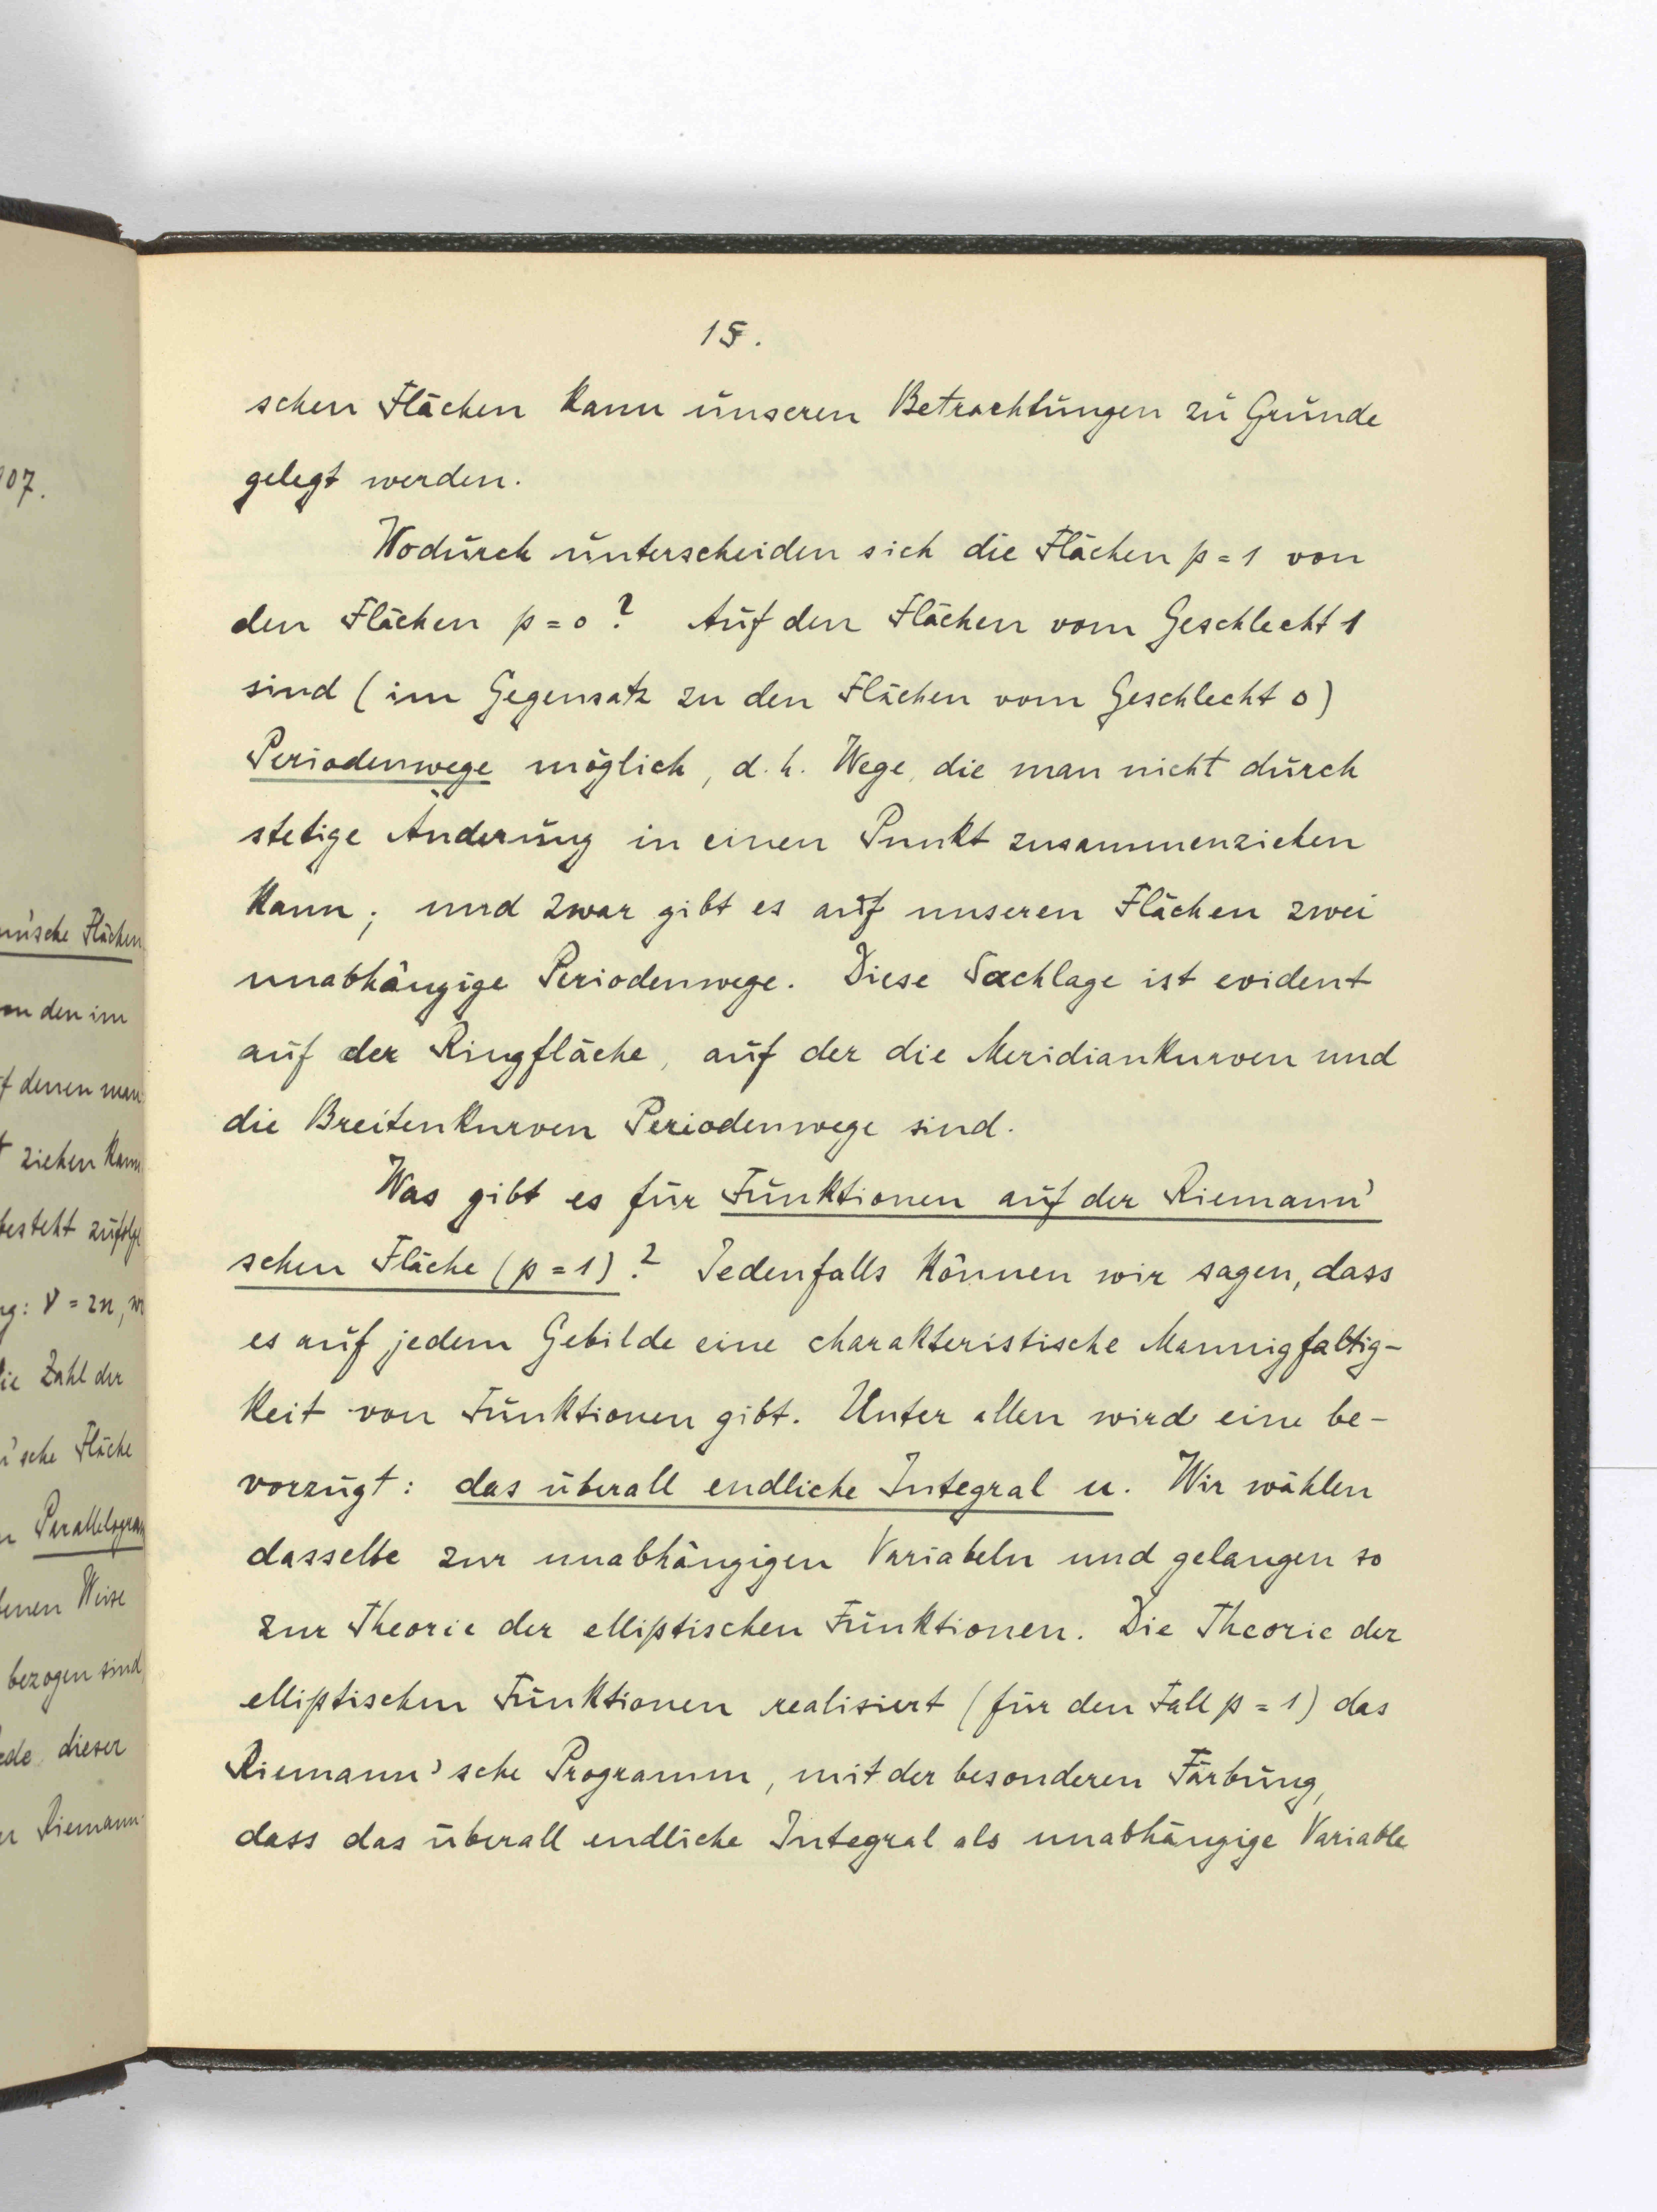 15.
schen Flächen kann unseren Betrachtungen zu Grunde
gelegt werden.
Wodurch unterscheiden sich die Flächen p = 1 von
den Flächen p = 0? Auf den Flächen vom Geschlecht 1
sind (im Gegensatz zu den Flächen vom Geschlecht 0)
Periodenwege möglich, d. h. Wege, die man nicht durch
stetige Änderung in einen Punkt zusammenziehen
kann; und zwar gibt es auf unseren Flächen zwei
unabhängige Periodenwege. Diese Sachlage ist evident
auf der Ringfläche, auf der die Meridiankurven und
die Breitenkurven Periodenwege sind.
Was gibt es für Funktionen auf der Riemann'
schen Fläche (p = 1)? Jedenfalls können wir sagen, dass
es auf jedem Gebilde eine charakteristische Mannigfaltig-
keit von Funktionen gibt. Unter allen wird eine be-
vorzugt: das überall endliche Integral u. Wir wählen
dasselbe zur unabhängigen Variabeln und gelangen so
zur Theorie der elliptischen Funktionen. Die Theorie der
elliptischen Funktionen realisiert (für den Fall p = 1) das
Riemann'sche Programm, mit der besonderen Färbung,
dass das überall endliche Integral als unabhängige Variable
07.
sche Flächen
den im
denen man
ziehen kann
besteht zufolge
: V = 2n, wo
Zahl der
sche Fläche
Parallelogram
Weise
bezogen sind
dieser
Riemann'